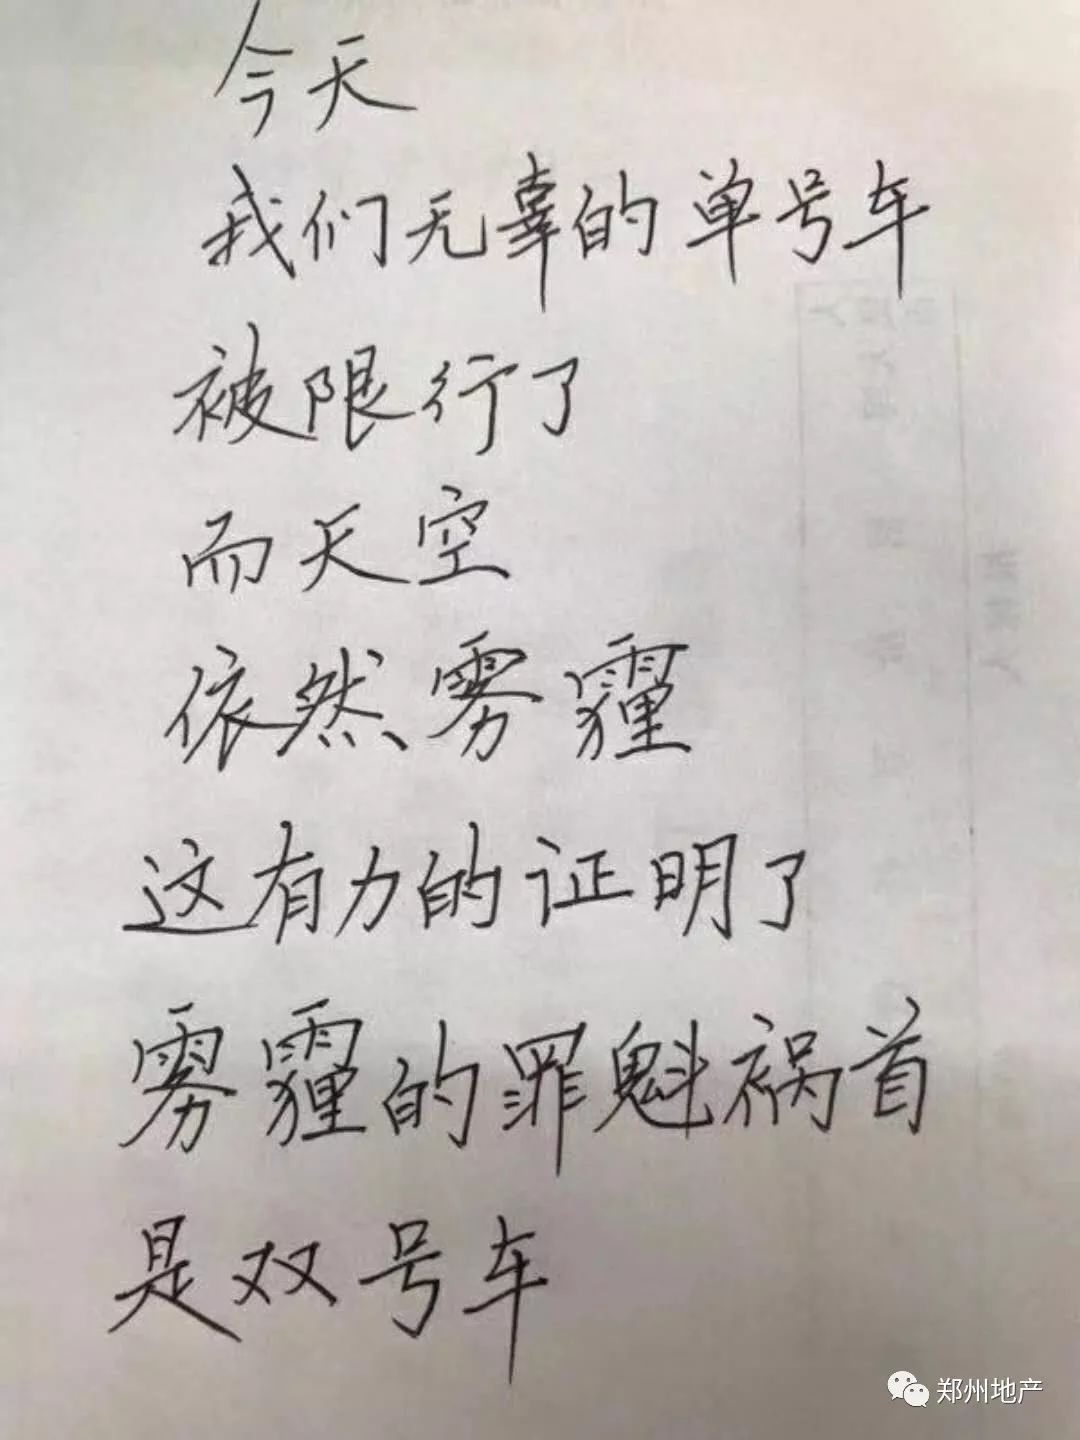 今天
我们无辜的单号车
被限行了
而天空
依然雾霾
这有力的证明了
雾霾的罪魁祸首
是双号车
郑州地产